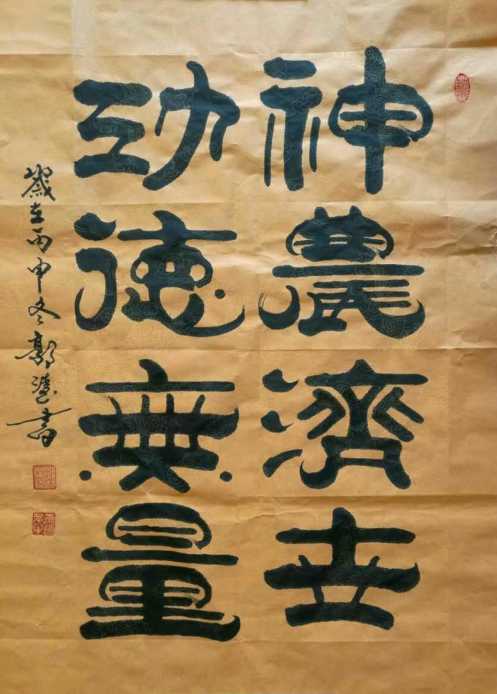 神農濟世
功德無量
歲在丙申冬郭澄書